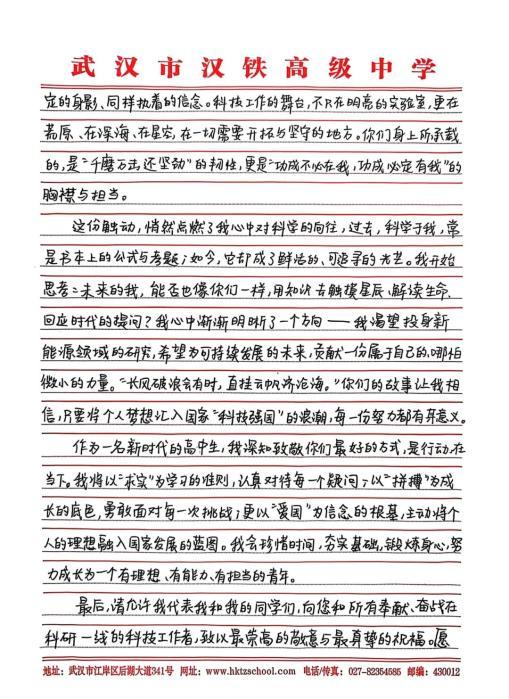 武汉市汉铁高级中学
定的身影、同样执着的信念。科技工作的舞台，不只在明亮的实验室，更在
荒原、在深海、在星宏，在一切需要开拓与坚守的地方。你们身上所承载
的，是“千磨万击还坚劲”的韧性，更是“功成不必在我，功成必定有我”的
胸襟与担当。
这份触动，悄然点燃了我心中对科学的向往，过去，科学于我，常
是书本上的公式与考题；如今，它却成了鲜活的、可追寻的光芒。我开始
思考：未来的我，能否也像你们一样，用知识去触摸星辰、解读生命、
回应时代的提问？我心中渐渐明晰了一个方向——我渴望投身新
能源领域的研究，希望为可持续发展的未来，贡献一份属于自己的、哪怕
微小的力量。“长风破浪会有时，直挂云帆济沧海。”你们的故事让我相
信，只要将个人梦想汇入国家“科技强国”的浪潮，每一份努力都有其意义。
作为一名新时代的高中生，我深知致敬你们最好的方式，是行动，在
当下。我将以“求实”为学习的准则，认真对待每一个疑问；以“拼搏”为成
长的底色，勇敢面对每一次挑战；更以“爱国”为信念的根基，主动将个
人的理想融入国家发展的蓝图。我会珍惜时间，夯实基础，锻炼身心，努
力成长为一个有理想、有能力、有担当的青年。
最后，请允许我代表我和我的同学们，向您和所有奉献、奋战在
科研一线的科技工作者，致以最崇高的敬意与最真挚的祝福。愿
地址：武汉市江岸区后湖大道341号 网址：www.hktzschool.com 电话/传真：027-82354585 邮编：430012